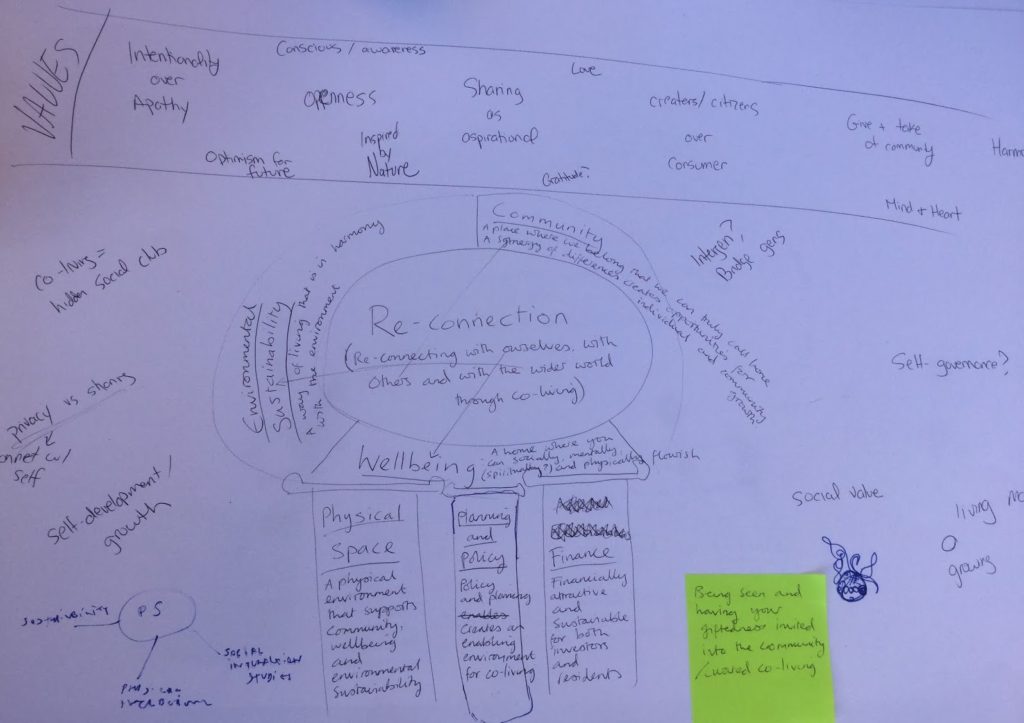 VALUES
Intentionality
over
Apathy
Conscious / awareness
Openness
Optimism for
future
Inspired
by
Nature
Sharing
as
aspirational
Love
Gratitude?
Creaters/ citizens
over
Consumer
Give + take
of community
Harmo
Mind + Heart
co-living =
hidden social club
Community
A place where we belong that we can truly call home
A synergy of differences creates opportunities for
individual and community
growth
Intergen?
Bridge gens
Environmental
Sustainability
A way of living that is in harmony
with the environment
Re-connection
(Re-connecting with ourselves, with
others and with the wider world
through co-living)
Self-governance?
privacy vs sharing
onnect w/
self
self-development /
growth
Wellbeing
A home where you
can socially, mentally,
(spiritually?) and physically flourish
Physical
Space
A physical
environment
that supports
community,
wellbeing
and
environmental
sustainability
Planning
and
Policy
Policy
and planning
enables
creates an
enabling
environment
for co-living
Finance
Financially
attractive
and
sustainable
for both
investors
and
residents
social value
living mo
growing
Being seen and
having your
giftedness invited
into the community
/ shared co-living
PS
sustainability
SOCIAL
STUDIES